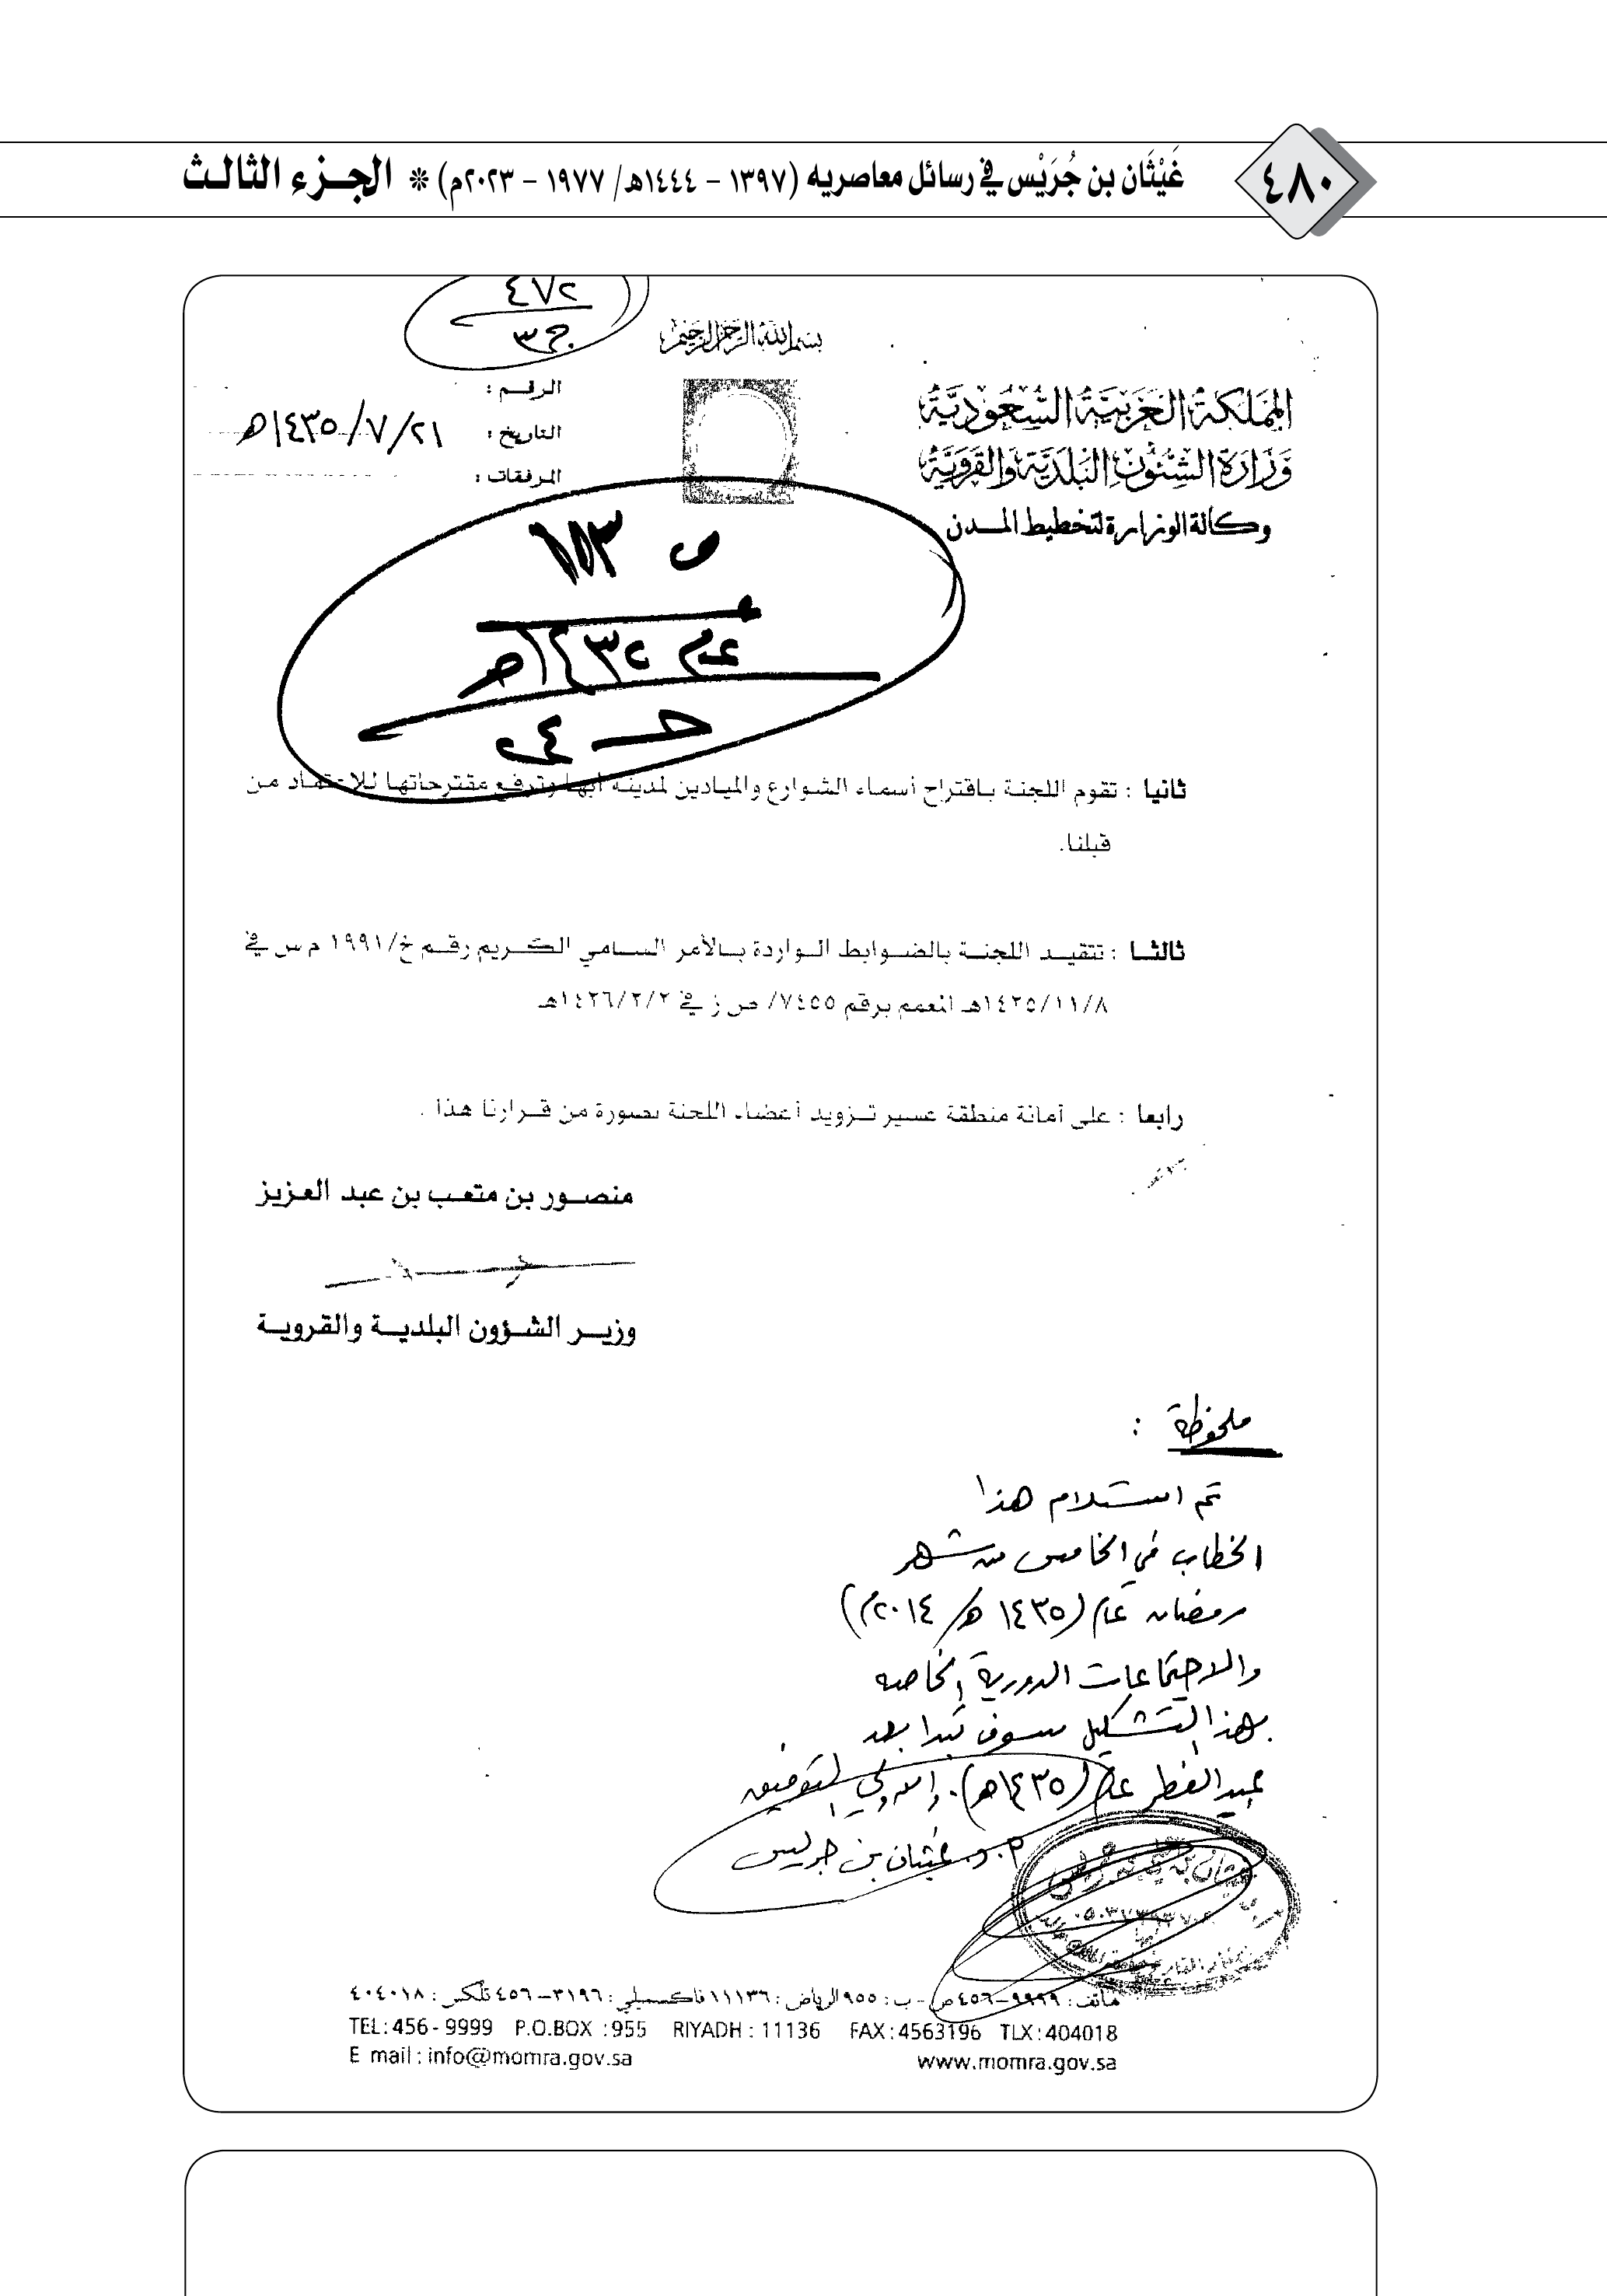 ٤٨٠
غَيْثَان بن جُرَيْس في رسائل معاصريه (١٣٩٧ - ١٤٤٤هـ/ ١٩٧٧ - ٢٠٢٣م) * الجزء الثالث
٤٧٢
ج٣
بسم الله الرحمن الرحيم
المملكة العربية السعودية
وزارة الشئون البلدية والقروية
وكالة الوزارة لتخطيط المدن
الرقم :
التاريخ : ١٤٣٥/٧/٢١هـ
المرفقات :
ص
عام ١٤٣٢هـ
ثانيا : تقوم اللجنة باقتراح أسماء الشوارع والميادين لمدينة أبها وترفع مقترحاتها للاعتماد من
قبلنا.
ثالثا : تتقيد اللجنة بالضوابط الواردة بالأمر السامي الكريم رقم خ/١٩٩١ م س في
١٤٢٥/١١/٨هـ المعمم برقم ٧٤٥٥/ ص ز في ١٤٢٦/٢/٢هـ
رابعا : على أمانة منطقة عسير تزويد أعضاء اللجنة بصورة من قرارنا هذا .
منصور بن متعب بن عبد العزيز
وزير الشؤون البلدية والقروية
ملحوظة :
تم استلام هذا
الخطاب في الخامس من شهر
رمضان عام (١٤٣٥هـ/ ٢٠١٤م)
والاجتماعات الدورية الخاصة
بهذا التشكيل سوف تبدا بعد
عيد الفطر عام (١٤٣٥هـ). والله ولي التوفيق
أ.د. غيثان بن جريس
هاتف : ٩٩٩٩-٤٥٦ ص - ب : ٩٥٥ الرياض : ١١١٣٦ فاكسميلي : ٣١٩٦-٤٥٦ تلكس : ٤٠٤٠١٨
TEL:456-9999 P.O.BOX :955 RIYADH : 11136 FAX:4563196 TLX:404018
E mail : info@momra.gov.sa www.momra.gov.sa